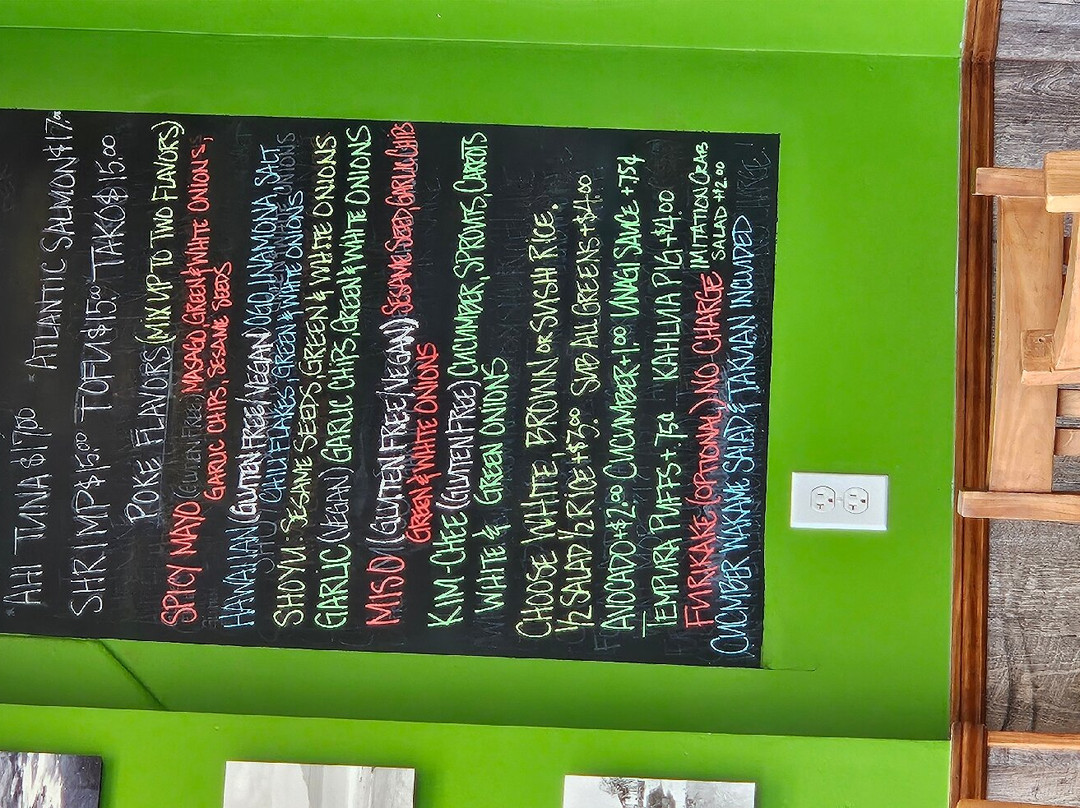 AHI TUNA $17.00 ATLANTIC SALMON $17.00
SHRIMP $15.00 TOFU $15.00 TAKO $15.00
POKE FLAVORS (MIX UP TO TWO FLAVORS)
SPICY MAYO (GLUTEN FREE) MASAGO, GREEN & WHITE ONIONS,
GARLIC CHIPS, SESAME SEEDS
HAWAIIAN (GLUTEN FREE/VEGAN) OGO, INAMONA, SALT
CHILI FLAKES, GREEN & WHITE ONIONS
SHOYU SESAME SEEDS, GREEN & WHITE ONIONS
GARLIC (VEGAN) GARLIC CHIPS, GREEN & WHITE ONIONS
MISO (GLUTEN FREE/VEGAN) SESAME SEED, GARLIC CHIPS
GREEN & WHITE ONIONS
KIM-CHEE (GLUTEN FREE) CUCUMBER, SPROUTS, CARROTS
WHITE & GREEN ONIONS
CHOOSE WHITE, BROWN OR SUSHI RICE.
1/2 SALAD 1/2 RICE +$3.00 SUB ALL GREENS +$4.00
AVOCADO +$2.00 CUCUMBER +1.00 UNAGI SAUCE +75¢
TEMPURA PUFFS + 75¢ KAHLUA PIG +$4.00
FURIKAKE (OPTIONAL) NO CHARGE IMITATION CRAB
SALAD +$2.00
CUCUMBER WAKAME SALAD & TAKUAN INCLUDED